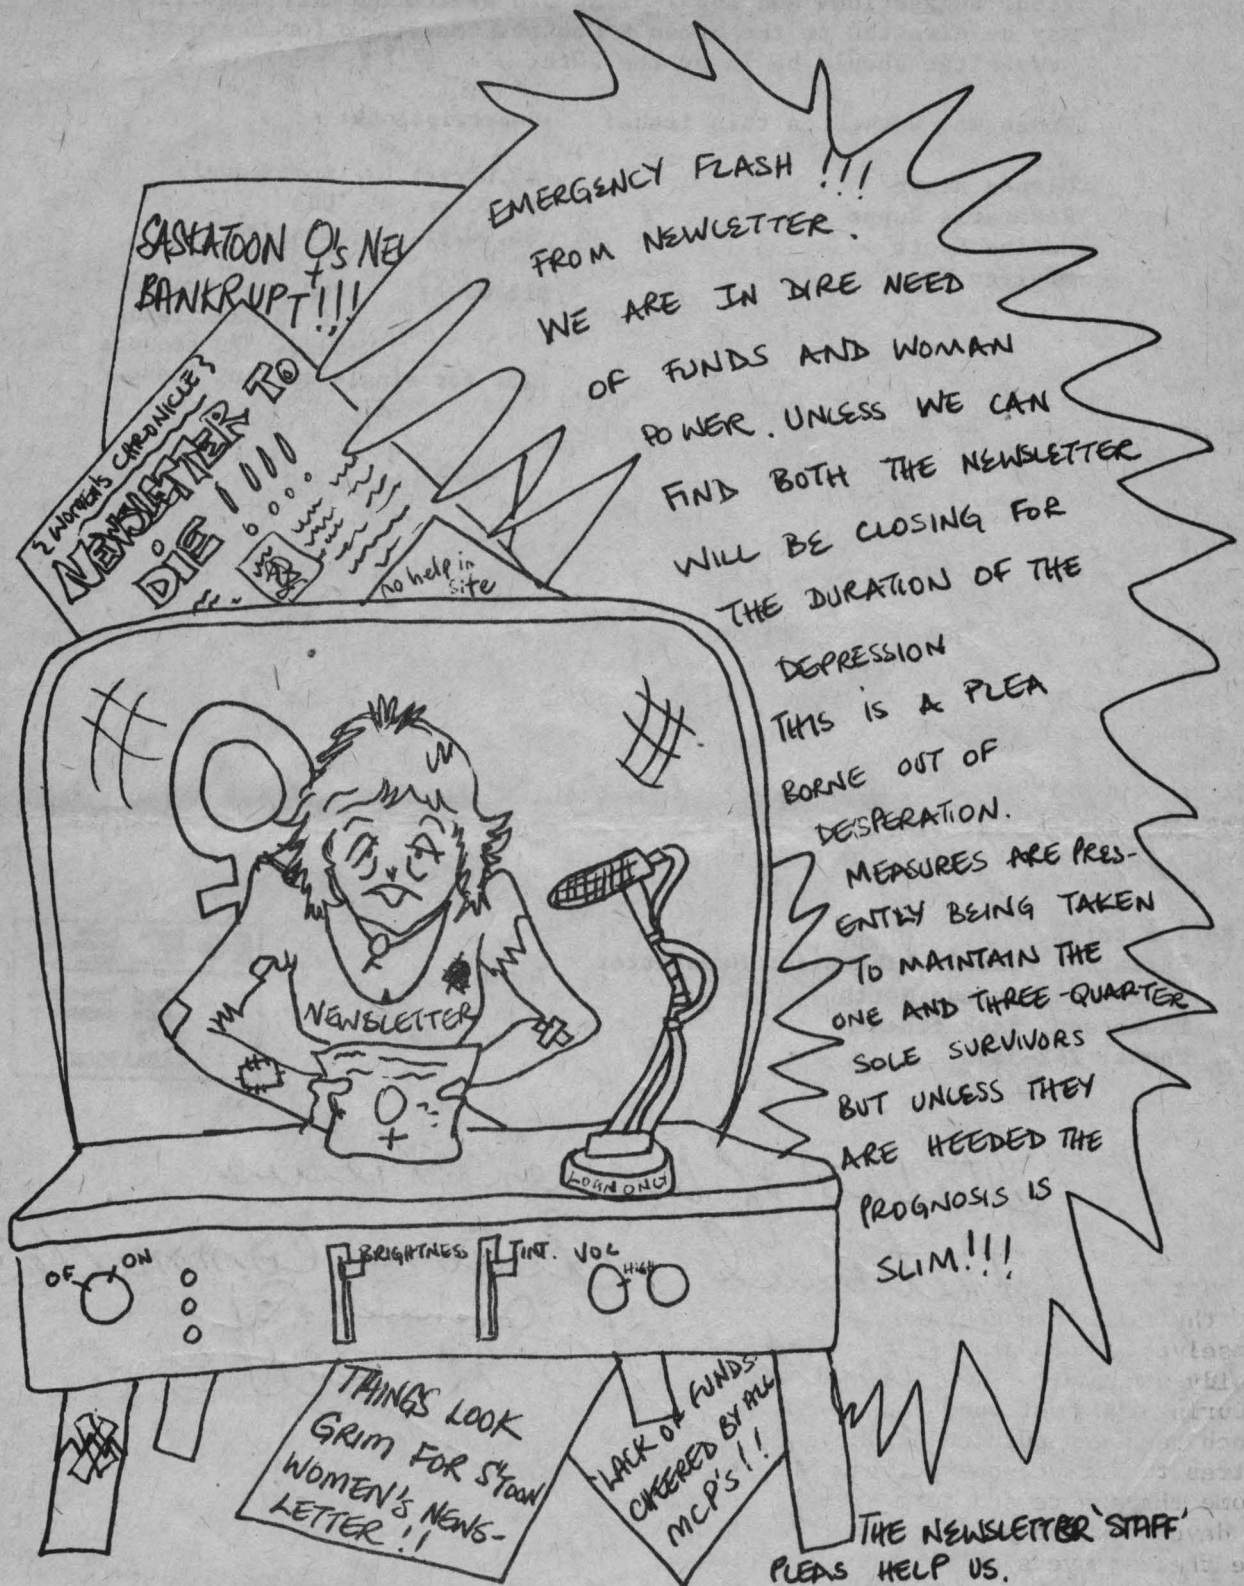 SASKATOON ♀'s NEW
BANKRUPT!!!
WOMEN'S CHRONICLE
NEWSLETTER TO
DIE!!!!
no help in
site
EMERGENCY FLASH!!!
FROM NEWLETTER.
WE ARE IN DIRE NEED
OF FUNDS AND WOMAN
POWER. UNLESS WE CAN
FIND BOTH THE NEWSLETTER
WILL BE CLOSING FOR
THE DURATION OF THE
DEPRESSION
THIS IS A PLEA
BORNE OUT OF
DESPERATION.
MEASURES ARE PRES-
ENTLY BEING TAKEN
TO MAINTAIN THE
ONE AND THREE-QUARTER
SOLE SURVIVORS
BUT UNLESS THEY
ARE HEEDED THE
PROGNOSIS IS
SLIM!!!
NEWSLETTER
♀
LOAN ONLY
OF ON BRIGHTNESS TINT. VOL HIGH
THINGS LOOK
GRIM FOR S'TOON
WOMEN'S NEWS-
LETTER!!
LACK OF FUNDS
CHEERED BY ALL
MCP'S!!
THE NEWSLETTER 'STAFF'
PLEAS HELP US.